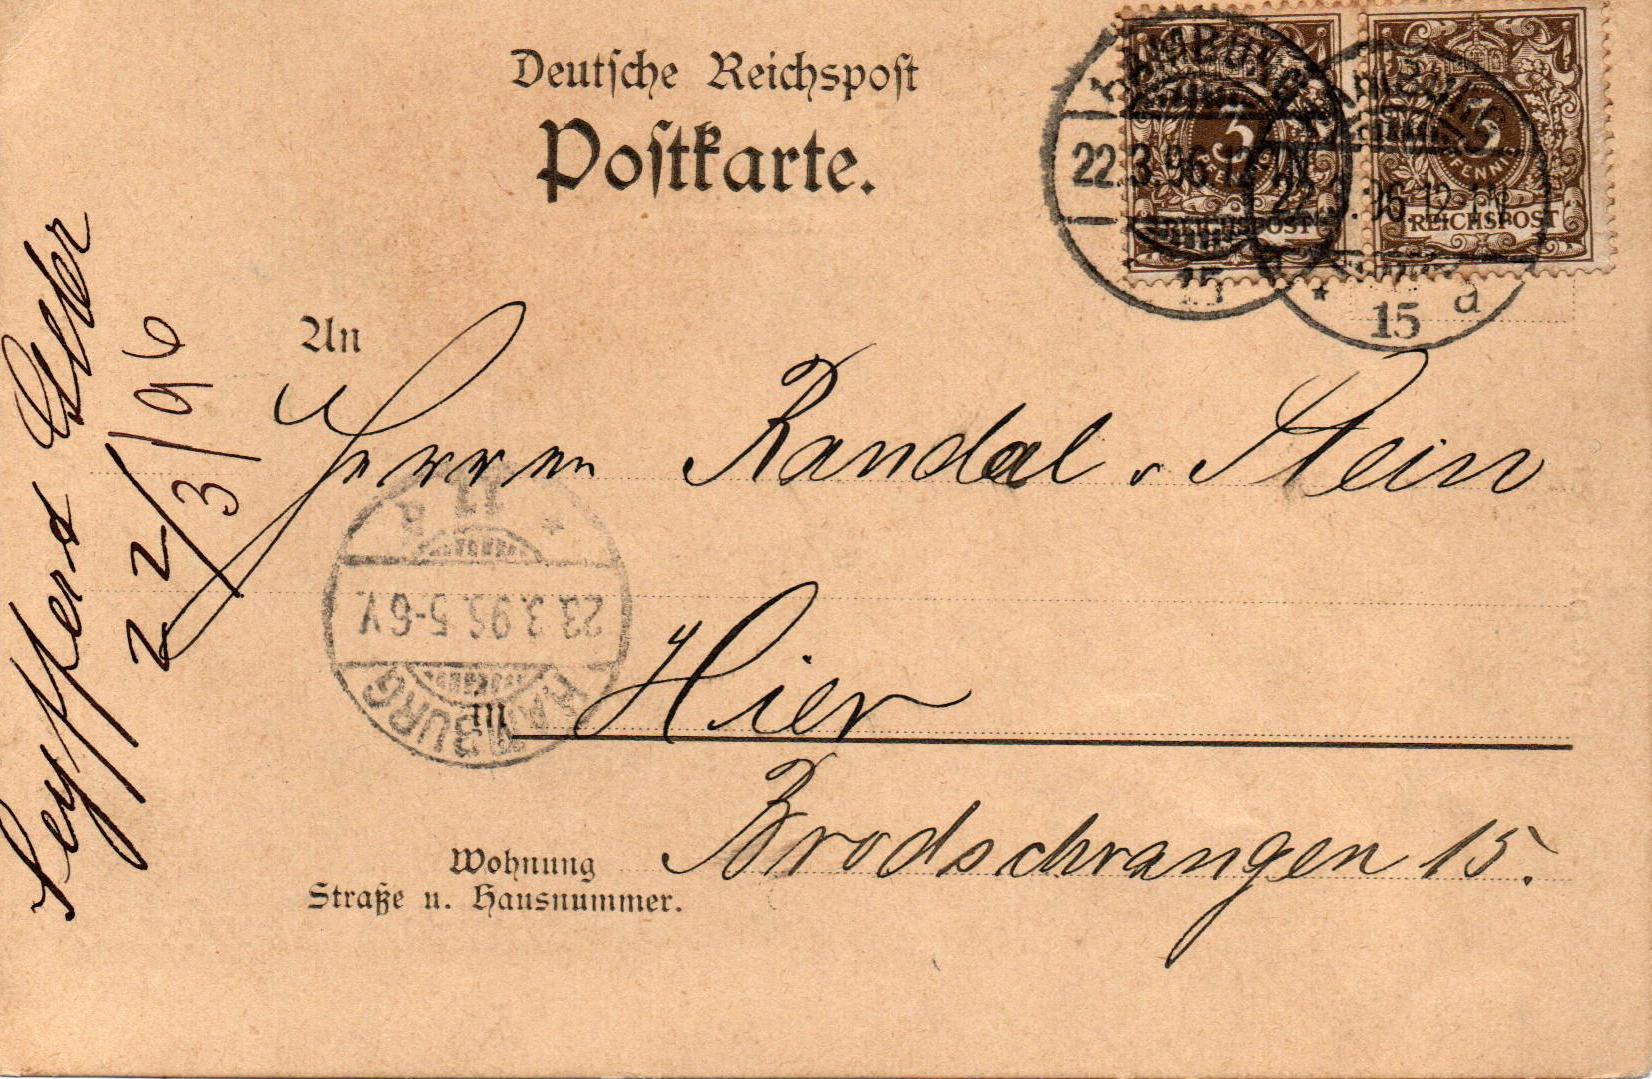 Deutsche Reichspost
Postkarte.
HAMBURG
22.3.96.12-1N
15
HAMBURG
22.3.96.12-1N
* 15 a
3
PFENNIG
REICHSPOST
3
PFENNIG
REICHSPOST
An
Herren Randal & Stein
in Hier
Wohnung
Straße u. Hausnummer.
Brodschrangen 15.
HAMBURG
23.3.96.5-6V.
* 11
Seyffert
22/3/96